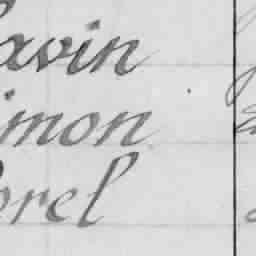 avin
imon
orel